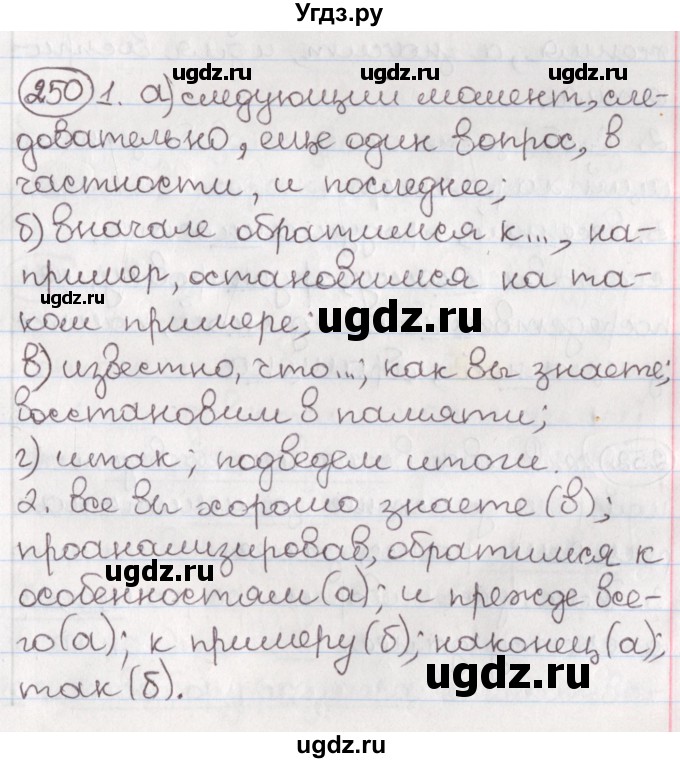 Угдз.ру
ugdz.ru ugdz.ru
250 1. а) следующий момент, сле-
довательно, еще один вопрос, в
частности, и последнее;
б) вначале обратимся к..., на-
пример, остановимся на та-
ugdz.ru
ком примере;
ugdz.ru
в) известно, что...; как вы знаете;
восстановим в памяти;
г) итак; подведем итоги.
2. все вы хорошо знаете (в);
проанализировав, обратимся к
ugdz.ru
особенностям (а); и прежде все-
го (а); к примеру (б); наконец (а);
ugdz.ru
так (б).
ugdz.ru